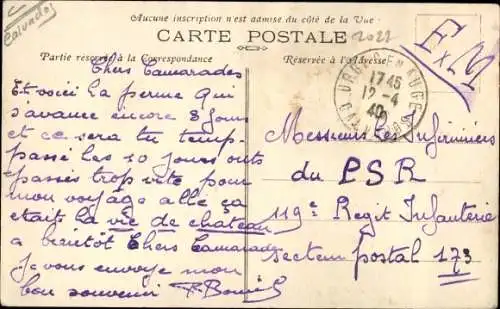 Calvados
Aucune inscription n'est admise du côté de la Vue
2022
CARTE POSTALE
Partie réservée à la Correspondance
Réservée à l'Adresse
F M
1745
12-4
40
Chers Camarades
Et voici la perme qui
s'avance encore 8 jours
et ce sera du temp
passé les 10 jours ont
passés trop vite pour
mon voyage alle ça
etait la vie de chateau
a bientôt Chers Camarades
Je vous envoye mon
bon souvenir
Messieurs les Infirmiers
du PSR
119e Regit Infanterie
secteur postal 173